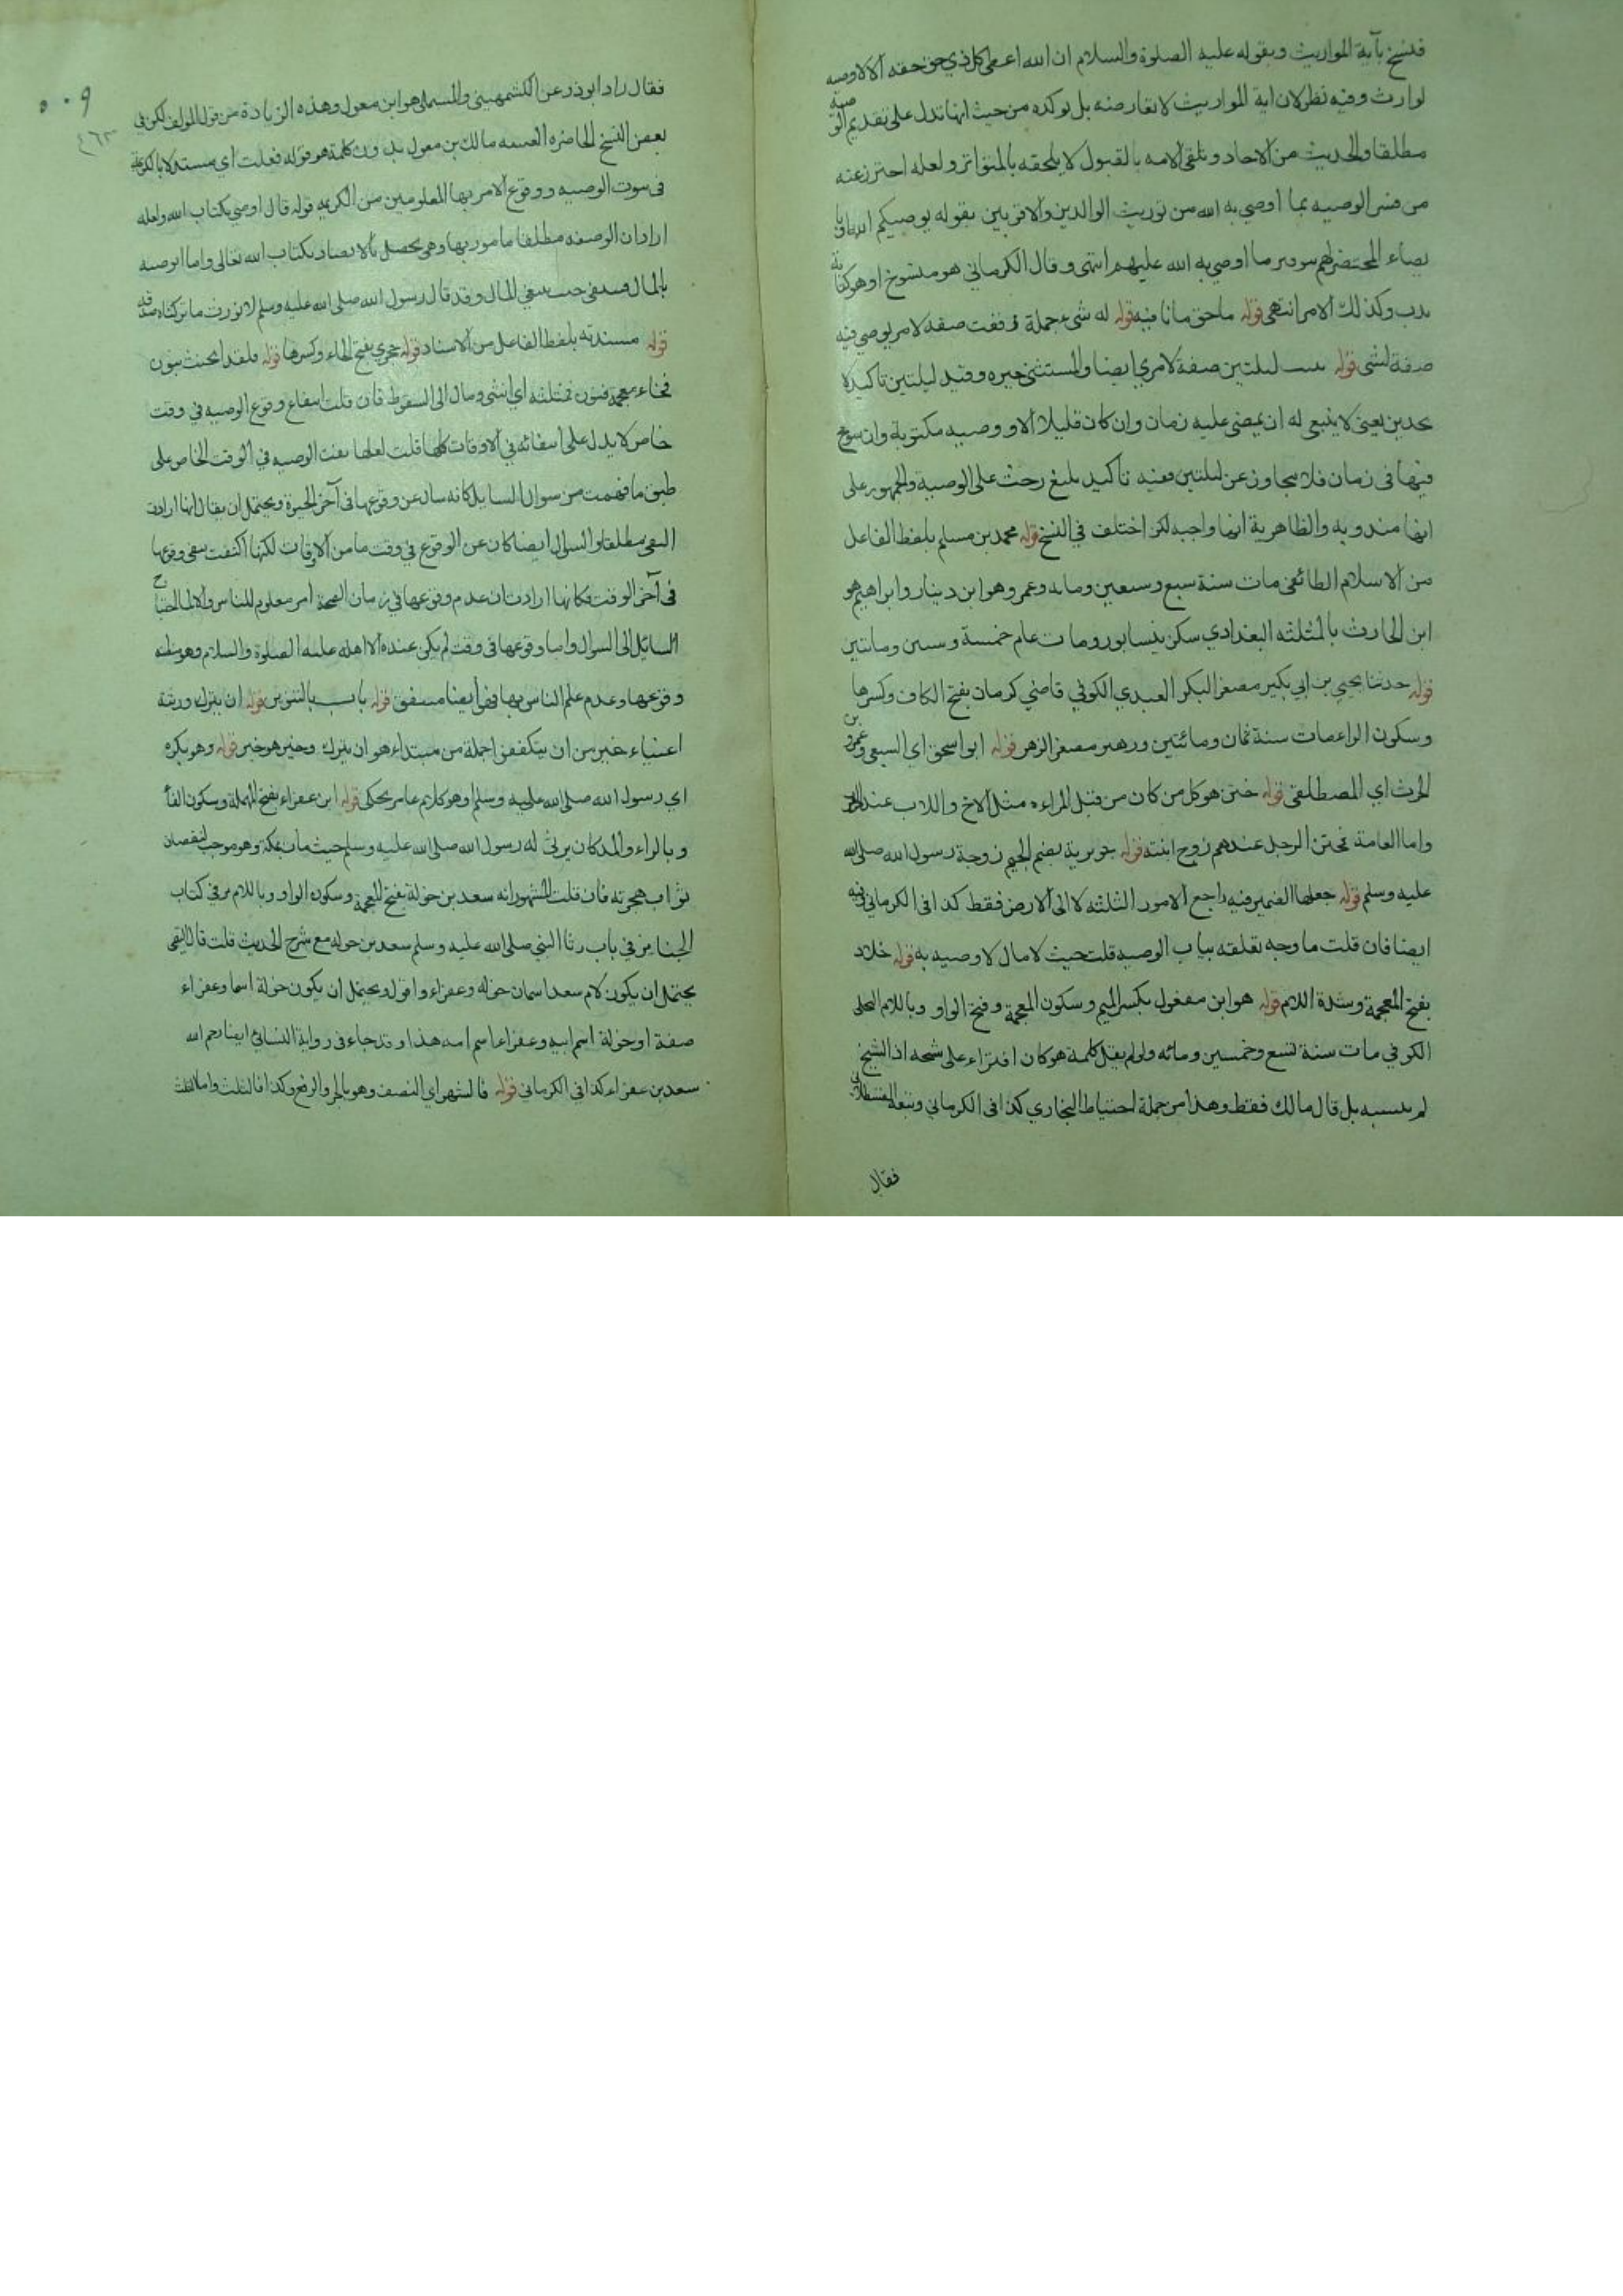 فنسخ بآية المواريث وبقوله عليه الصلوة والسلام ان الله اعطى كل ذي حق حقه الا لا وصيه
لوارث وفيه نظر لان اية المواريث لا تعارضه بل توكده من حيث انها تدل على تقديم الوصية
مطلقا والحديث من الاحاد وتلقى الامه بالقبول لا يلحقه بالمتواتر ولعله احترز عنه
من فسر الوصيه بما اوصي به الله من توريث الوالدين والاقربين بقوله يوصيكم الله او با
يصاء المحتضر لهم ما اوصي به الله عليهم انتهى وقال الكرماني هو منسوخ او هو كناية
وكذلك الامر انتهى قوله ماحق مانافيه قوله له شيء جملة وقعت صفة لامر يوصي فيه
صفة لشى قوله يبيت ليلتين صفة لامري ايضا والمستثنى خبره وقيد ليلتين تاكيد لا
تحديد يعنى لا ينبغي له ان يمضى عليه زمان وان كان قليلا الا ووصيه مكتوبة وان سومح
فيها فى زمان فلا يتجاوز عن ليلتين ففيه تاكيد بليغ وحث على الوصية والجمهور على
انها مندوبه والظاهرية انها واجبه لكن اختلف في النسخ قوله محمد بن مسلم بلفظ الفاعل
من الاسلام الطائفى مات سنة سبع وسبعين ومايه وعمر وهو ابن دينار وابراهيم هو
ابن الحارث بالمثلثه البغدادي سكن نيسابور ومات عام خمسة وستين ومائتين
قوله حدثنا يحيى بن ابي بكير مصغر البكر العبدي الكوفي قاضي كرمان بفتح الكاف وكسرها
وسكون الراء مات سنة ثمان ومائتين وزهير مصغر الزهر قوله ابو اسحق اي السبيعي وعمرو بن
الحرث اي المصطلقى قوله ختن هو كل من كان من قبل المراءه مثل الاخ والاب عند العرب
واما العامة فختن الرجل عندهم زوج ابنته قوله جويرية بضم الجيم زوجة رسول الله صلى الله
عليه وسلم قوله جعلها الضمير فيه راجع الامور الثلثه لا الى الارض فقط كذا فى الكرماني وفيه
ايضا فان قلت ما وجه تعلقه بباب الوصيه قلت حيث لا مال لا وصيه به قوله خلاد
بفتح المعجمة وشدة اللام قوله هو ابن مغفول بكسر الميم وسكون المعجمة وفتح الواو وباللام البجلى
الكوفي مات سنة تسع وخمسين ومائه ولو لم يقل كلمة هو كان افتراء على شيخه اذ الشيخ
لم ينسبه بل قال مالك فقط وهذا من جملة احتياط البخاري كذا فى الكرماني وتبعه القسطلاني
فقال
٥٠٩
٤٦٣
فقال زاد ابوذر عن الكشمهيني والمستملى هو ابن مغول وهذه الزيادة من قول المولف لكن فى
بعض النسخ الحاضره مالك بن مغول بدون كلمة هو قوله فعلت اي مستدلا بالكريمة
فى ثبوت الوصيه ووقوع الامر بها المعلومين من الكريمه قوله قال اوصي بكتاب الله ولعله
اراد ان الوصية مطلقا مامور بها وهى تحصل بالايصاء بكتاب الله تعالى واما الوصيه
بالمال فينفى حيث ينفي المال وقد قال رسول الله صلى الله عليه وسلم لا نورث ما تركناه صدقه
قوله مسندته بلفظ الفاعل من الاسناد قوله حجري بفتح الحاء وكسرها قوله فلقد انخنث بنون
فخاء معجمة فنون فمثلثه اي انثنى ومال الى السقوط فان قلت انتفاء وقوع الوصيه في وقت
خاص لا يدل على انتفائه في الاوقات كلها قلت لعلها نفت الوصيه في الوقت الخاص على
طبق ما فهمت من سوال السايل كانه سال عن وقوعها فى آخر الحيوة ويحتمل ان يقال انها ارادت
النفى مطلقا والسوال ايضا كان عن الوقوع في وقت ما من الاوقات لكنها اكتفت بنفى وقوعها
فى آخر الوقت فكانها ارادت ان عدم وقوعها في زمان الصحة امر معلوم للناس
السائل الى السوال واما وقوعها فى وقت لم يكن عنده الا اهله عليه الصلوة والسلام وهو مظنه
وقوعها وعدم علم الناس بها فهو ايضا منتف قوله باب بالتنوين قوله ان يترك ورثة
اغنياء خير من ان يتكففوا جملة من مبتداء هو ان يترك وخبر هو خير قوله وهو يكره
اي رسول الله صلى الله عليه وسلم او هو كلام عامر يحكى قوله ابن عفراء بفتح المهملة وسكون الفا
وبالراء والمد كان يرثي له رسول الله صلى الله عليه وسلم حيث مات بمكة وهو موجب لنقصان
ثواب هجرته فان قلت المشهور انه سعد بن خولة بفتح المعجمة وسكون الواو وباللام مر في كتاب
الجنايز في باب رثا النبي صلى الله عليه وسلم سعد بن خوله مع شرح الحديث قلت قال التيمى
يحتمل ان يكون لام سعد اسمان خوله وعفراء واقول ويحتمل ان يكون خولة اسما وعفراء
صفة او خولة اسم ابيه وعفراء اسم امه هذا وقد جاء فى رواية النسائي ايضا رحم الله
سعد بن عفراء كذا في الكرماني قوله فالشطر اي النصف وهو بالجر والرفع وكذا فالثلث واما الثلث